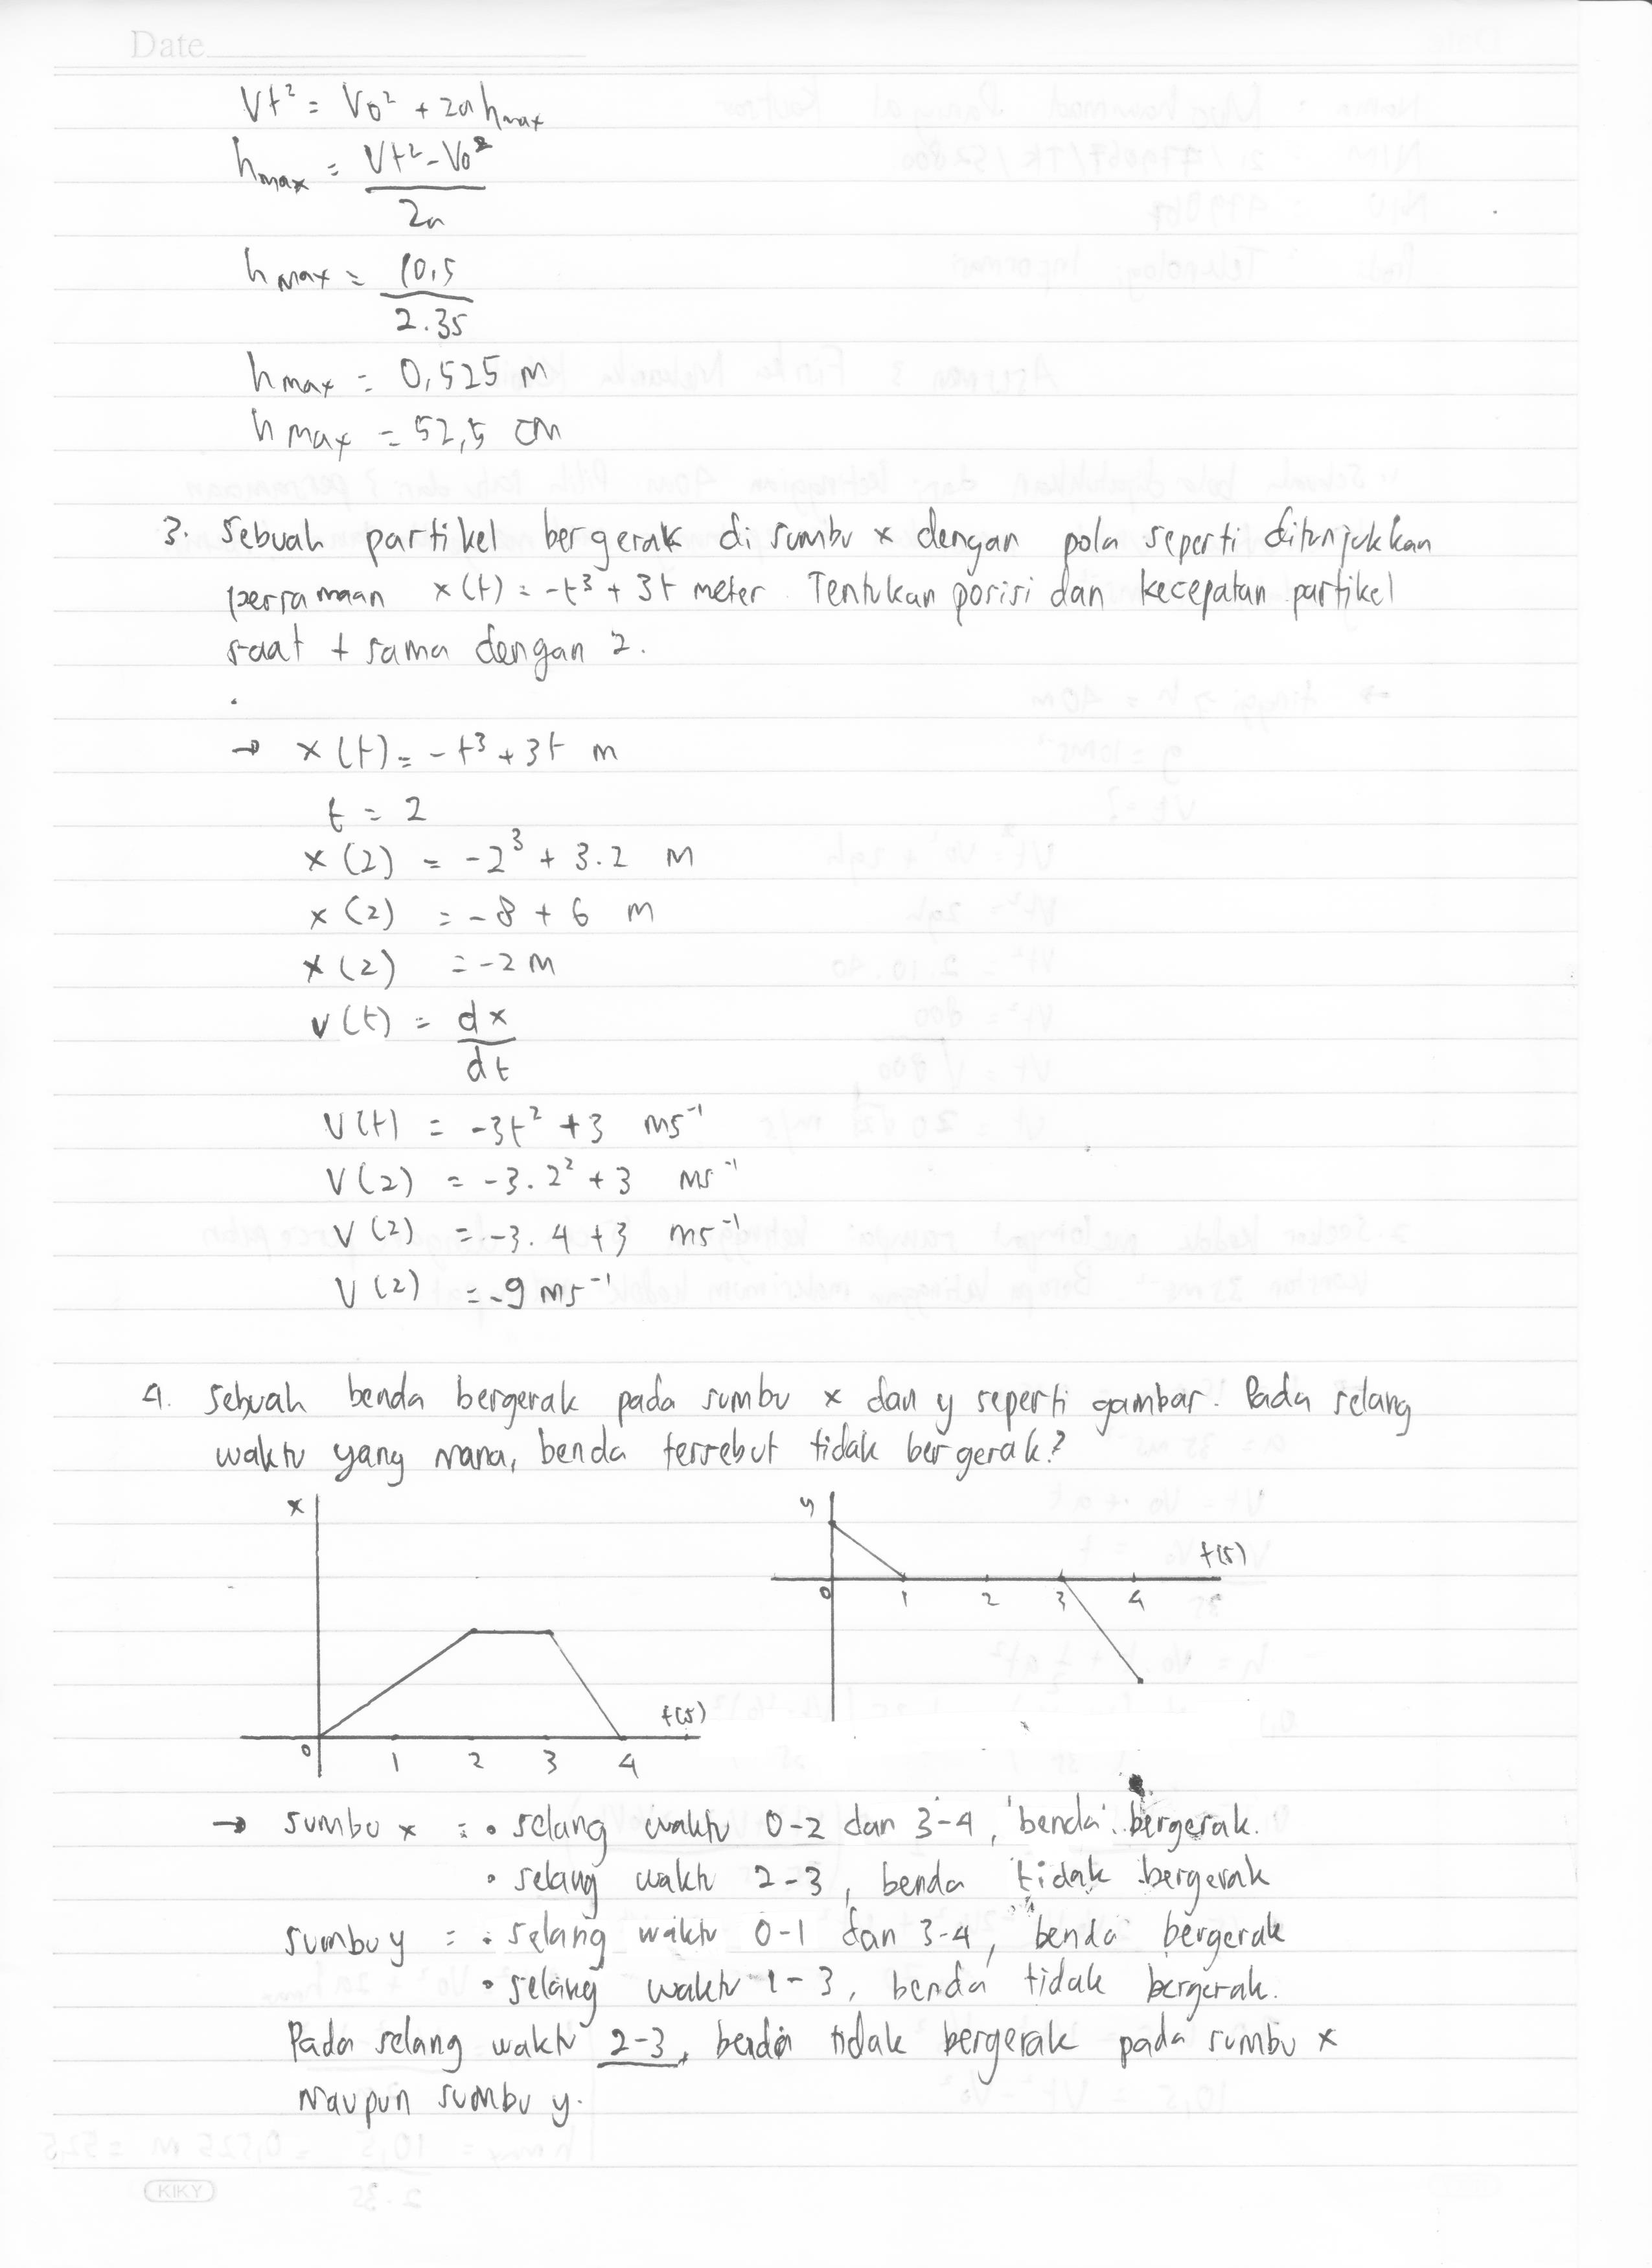 Date
Vt² = Vo² + 2a hmax
hmax = Vt² - Vo²
2a
hmax = 10,5
2.35
hmax = 0,525 m
hmax = 52,5 cm
3. Sebuah partikel bergerak di sumbu x dengan pola seperti ditunjukkan
persamaan x(t) = -t³ + 3t meter. Tentukan posisi dan kecepatan partikel
saat t sama dengan 2.
→ x(t) = -t³ + 3t m
t = 2
x(2) = -2³ + 3.2 m
x(2) = -8 + 6 m
x(2) = -2 m
v(t) = dx
dt
v(t) = -3t² + 3 ms⁻¹
v(2) = -3.2² + 3 ms⁻¹
v(2) = -3.4 + 3 ms⁻¹
v(2) = -9 ms⁻¹
4. Sebuah benda bergerak pada sumbu x dan y seperti gambar. Pada selang
waktu yang mana, benda tersebut tidak bergerak?
x
t(s)
0 1 2 3 4
y
t(s)
0 1 2 3 4
→ sumbu x = • selang waktu 0-2 dan 3-4, benda bergerak.
• selang waktu 2-3, benda tidak bergerak
sumbu y = • selang waktu 0-1 dan 3-4, benda bergerak
• selang waktu 1-3, benda tidak bergerak.
Pada selang waktu 2-3, benda tidak bergerak pada sumbu x
maupun sumbu y.
KIKY